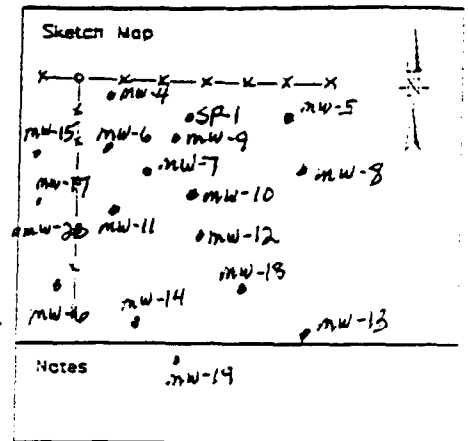 Sketch Map
MW-4
SP-1
MW-5
MW-15
MW-6
MW-9
MW-7
MW-8
MW-17
MW-10
MW-11
MW-20
MW-12
MW-18
MW-14
MW-16
MW-13
Notes
MW-19